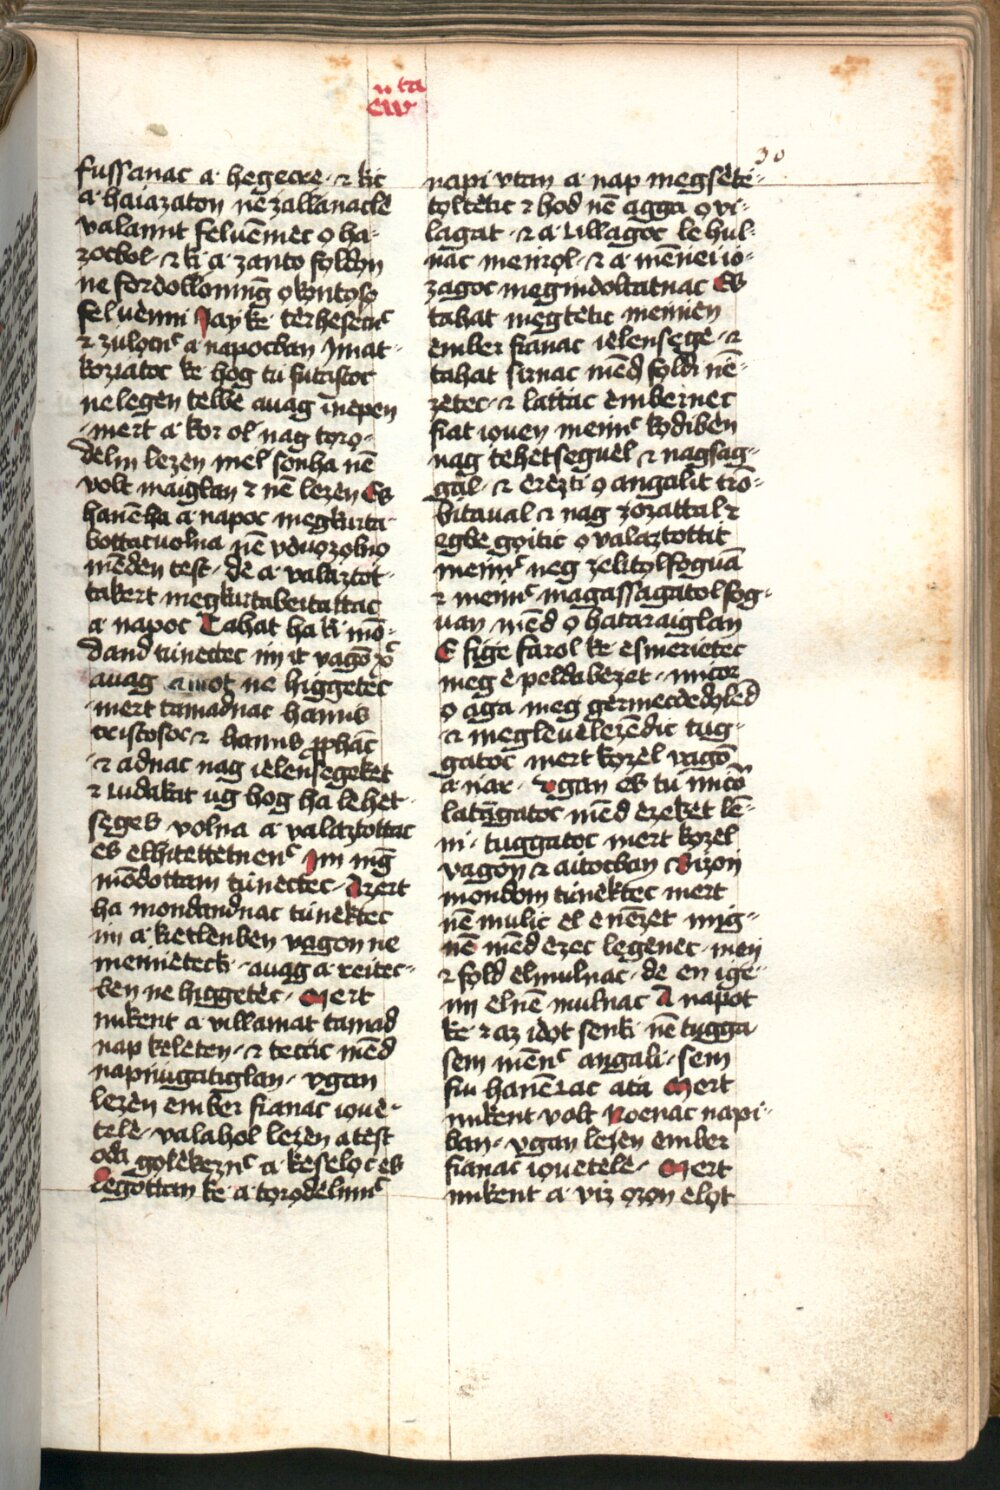 fussanac a · hegecre · ⁊ kic
a haiazaton nē zallanaclė
valamit feluēniėc o ha-
zocbol · ⁊ ki a zanto foldøn
ne fordolloniēg o køntosø
feluēnni Jay kė tėrhesecnc
⁊ zuloknc a napocban Imat-
koziatoc kė hog tu futastoc
ne legen telbė auag inepen
mert a kor ol nag tørø-
delm lezen mel sonha nē
volt maiglan ⁊ nē lezen Es
hanēha a napoc megkurta
bottacuolna nē vduøzøbno
mēden test · dė a valaztot-
takert megkurtabeitattac
a napoc Tahat ha ki mō-
dand tunectec im it vagō xpc
auag amot ne higgetėc
mert tamadnac hamis
cristosoc ⁊ hamis pphac
⁊ adnac nag ielensegeket
⁊ cudakat ug hog ha lehet-
seges volna a valaztottac
es elhitettetnenc Im mēg
mōdottam tunectec · Azert
ha mondandnac tunektec
im a kietlenben vagon ne
menietec ki · auag a reitec-
ben ne higgetėc · Mert
mikent a villamat tamad
nap keletėn · ⁊ tetic mēd
napniugatiglan · vgan
lezen ember fianac iouė-
telė · valahol lezen a test
oda gølekeznc a keseløc es
Legottan kė a tørødelmnc
30
napi vtan a nap megsėtė-
toltetic ⁊ hod nē agga o vi-
lagat · ⁊ a cillagoc lė hul-
nac menrol · ⁊ a mēnei io-
zagoc megindoltatnac Es
tahat megtetic mennen
ember fianac ielensegė · ⁊
tahat sirnac mēd foldi nē-
zetec · ⁊ lattac embernec
fiat iouen mennc kødiben
nag tehetseguel ⁊ nagsag-
gal · ⁊ erezti o angalit trō-
bitaual ⁊ nag zozattal ⁊
egbė goitic o valaztottit
mennc neg zelitol foguā
⁊ mennc magassagatol fog-
uan mēd o hataraiglan
E figefarol kė esmerietec
meg e peldabezet · micor
o aga meg germecdedølēd
⁊ megleuelezēdic tug-
gatoc mert közel vagō
a nar · vgan es tu micor
lataṇgatoc mēd ezeket lē-
ni · tuggatoc mert kozel
vagon ⁊ aitocban Bizon
mondom tunektec mert
nē mulic el e nēzet mig-
nē mēd ezec legenec · men
⁊ fold elmulnac · dė en ige-
im el nē mulnac A napot
kė ⁊ az idot senki nē tugga
sem mēnc angali · sem
fiu hanē čac ata Mert
mikent volt Noenac napi-
ban · vgan lezen ember
fianac iouetelė · Mert
mikent a viz øzøn eløt